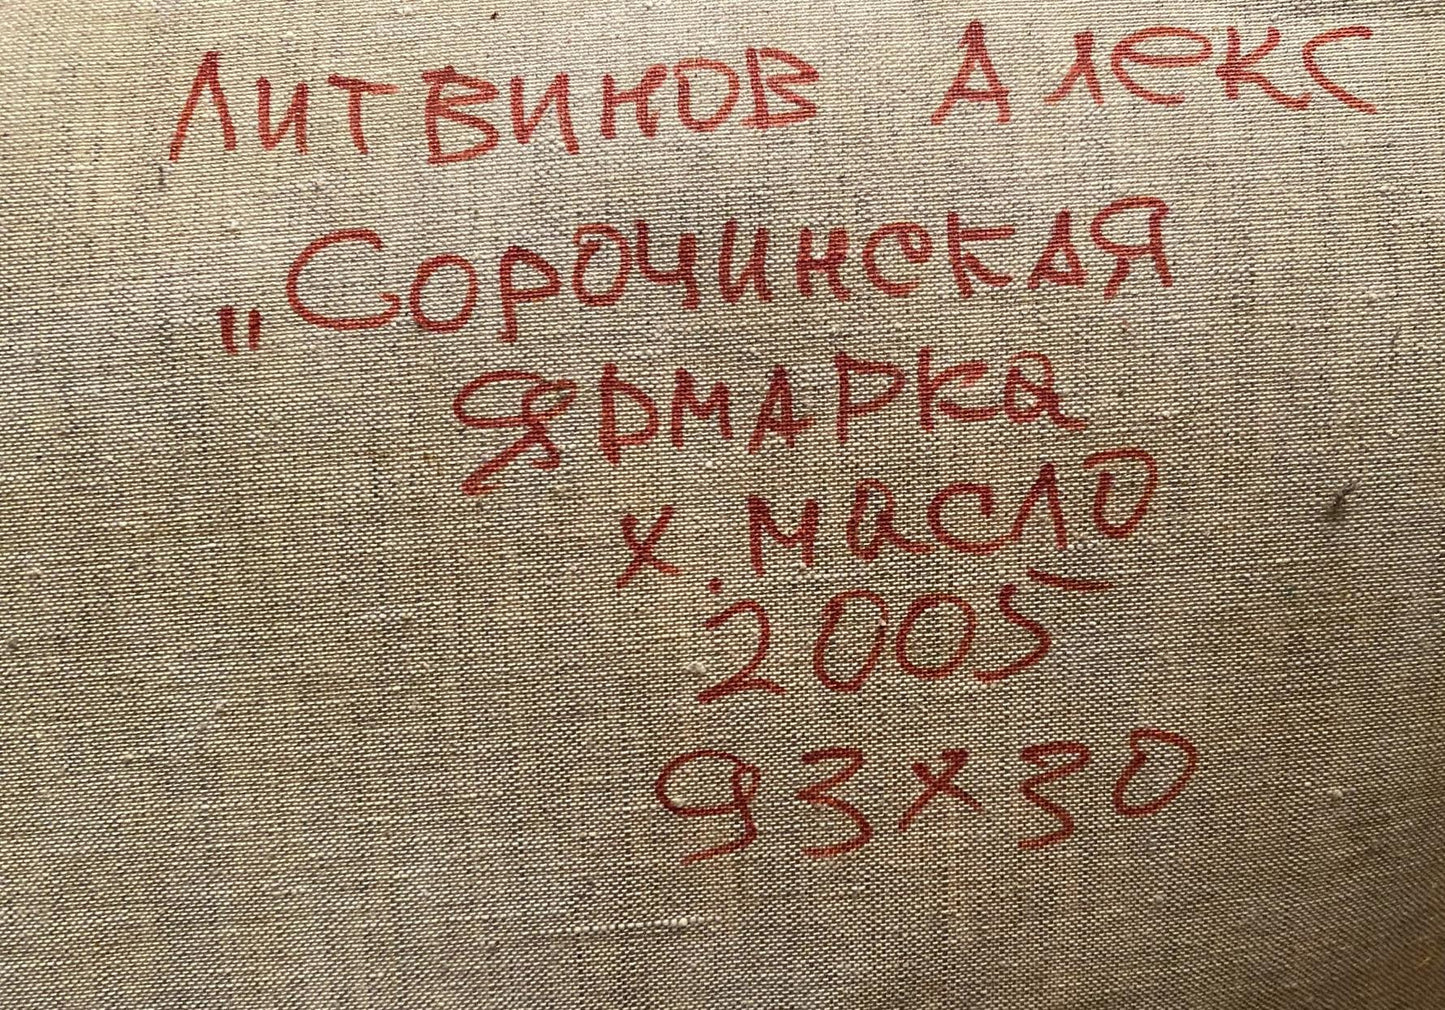 Литвинов Алекс
„Сорочинская
Ярмарка
х. масло
2005
93х30